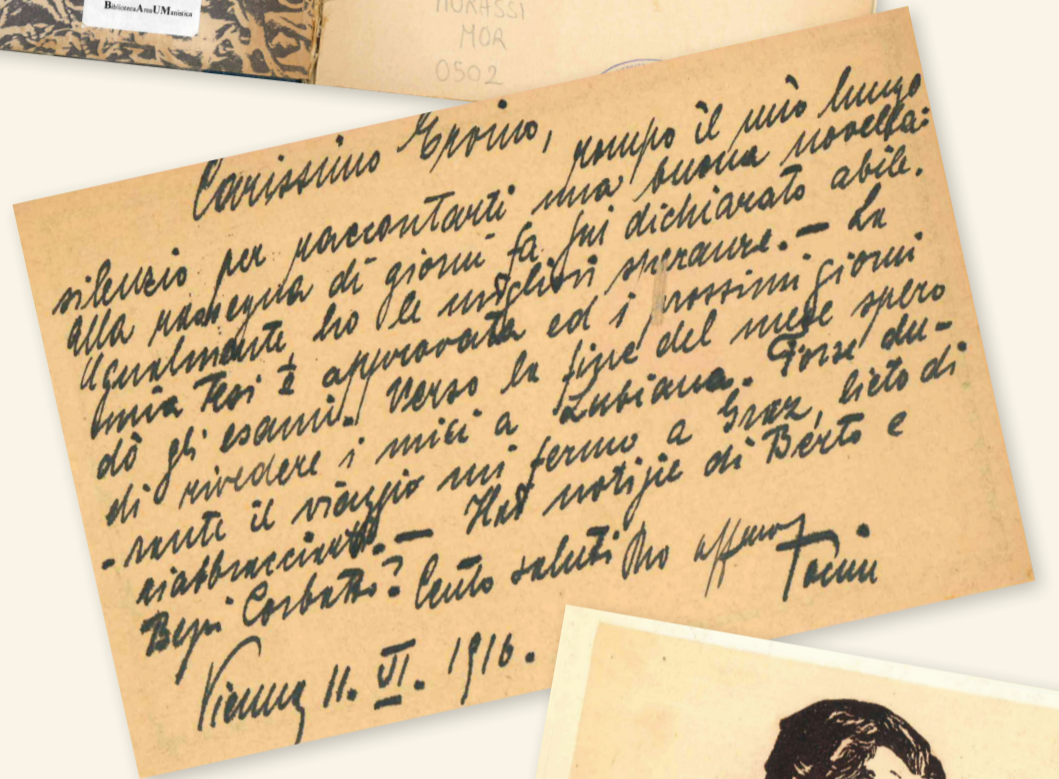 BibliotecaAreaUManistica
MORASSI
MOR
0502
Carissimo Ervino,
rompo il mio lungo
silenzio per raccontarti una buona novella:
alla rassegna di giorni fa fui dichiarato abile.
Ugualmente ho le migliori speranze. — La
mia tesi è approvata ed i prossimi giorni
dò gli esami. Verso la fine del mese spero
di rivedere i miei a Lubiana. Forse du-
-rante il viaggio mi fermo a Graz, lieto di
riabbracciarti. — Hai notizie di Berto e
Bepi Corbatto? Cento saluti tuo affmo
Tonin
Vienna 11. VI. 1916.